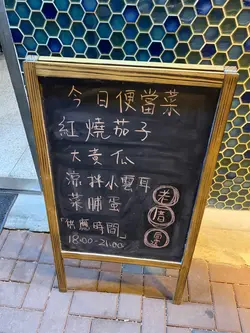 今日便當菜
紅燒茄子
大黃瓜
涼拌小雲耳
菜脯蛋
「供應時間」
18:00-21:00
老厝